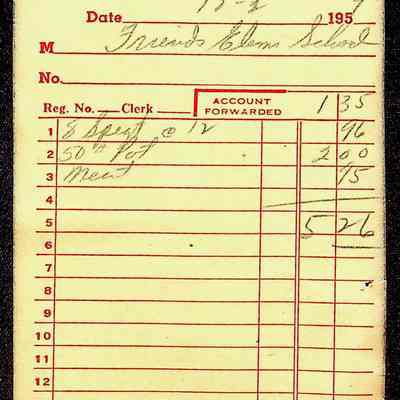 Date 12-2 195
M Friends Elem School
No.
Reg. No. Clerk ACCOUNT FORWARDED 1 35
1 8 Spegt @ 12 96
2 50 # Pot 2 00
3 Meat 95
4
5 5 26
6
7
8
9
10
11
12